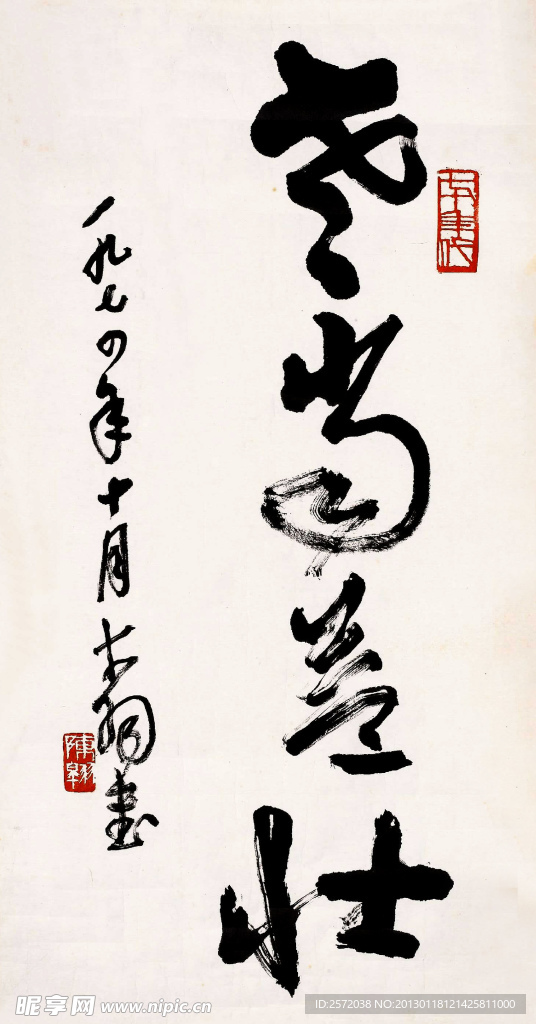 老當益壯
一九七四年十月大羽書
陳翱
昵享网 www.nipic.cn
ID:2572038 NO:20130118121425811000